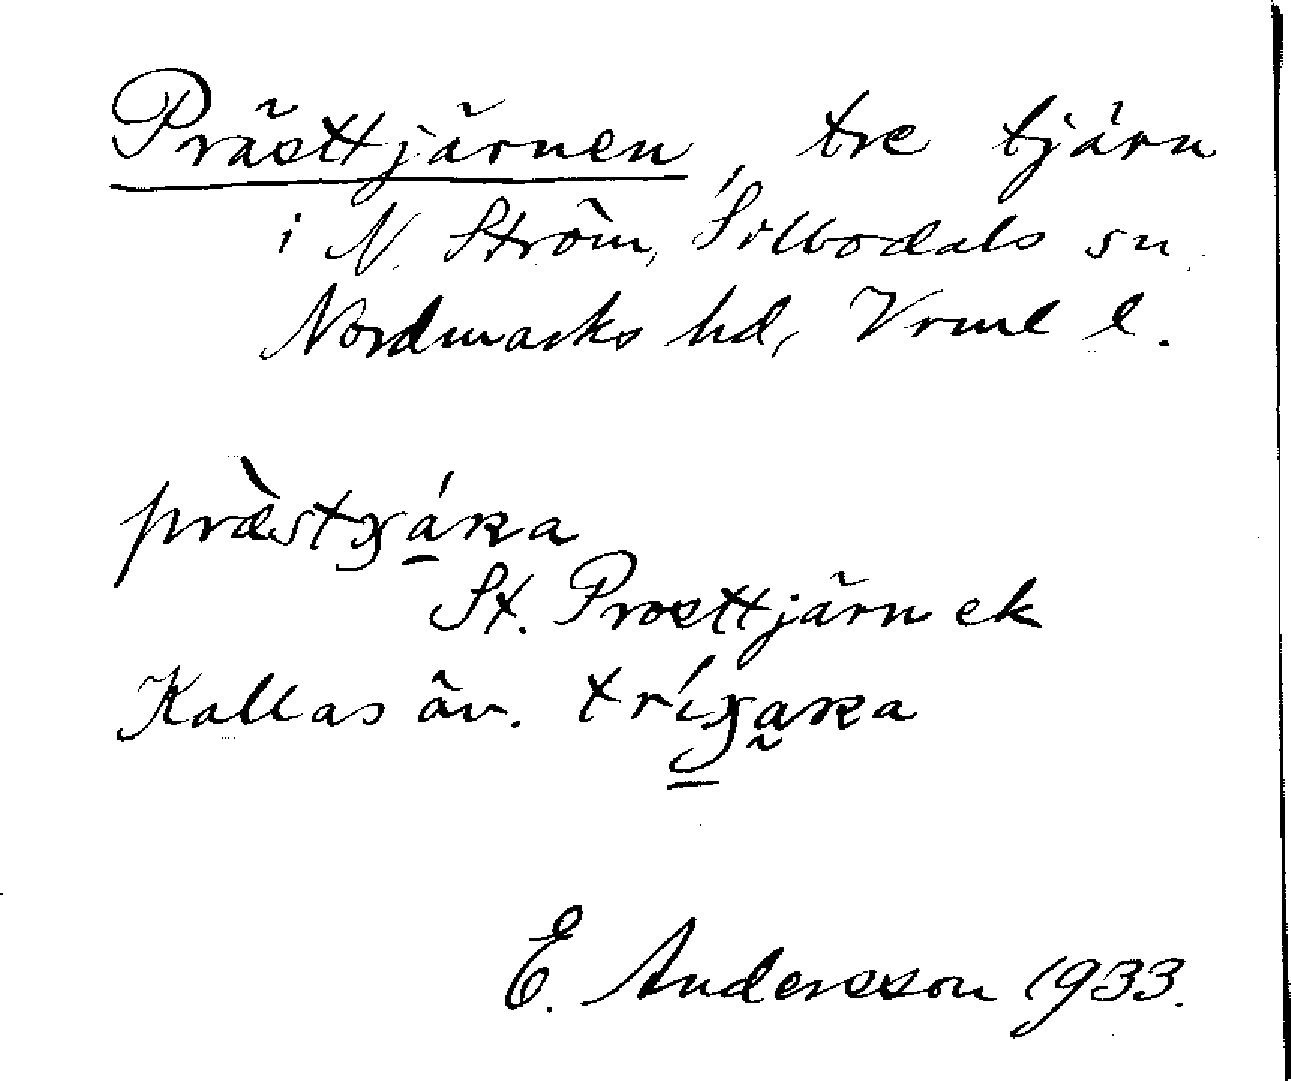 Prästtjärnen, tre tjärn
i N. Ström, Silbodals sn
Nordmarks hd, Vrml l.
St. Prosttjärn ek
Kallas äv.
E. Andersson 1933.